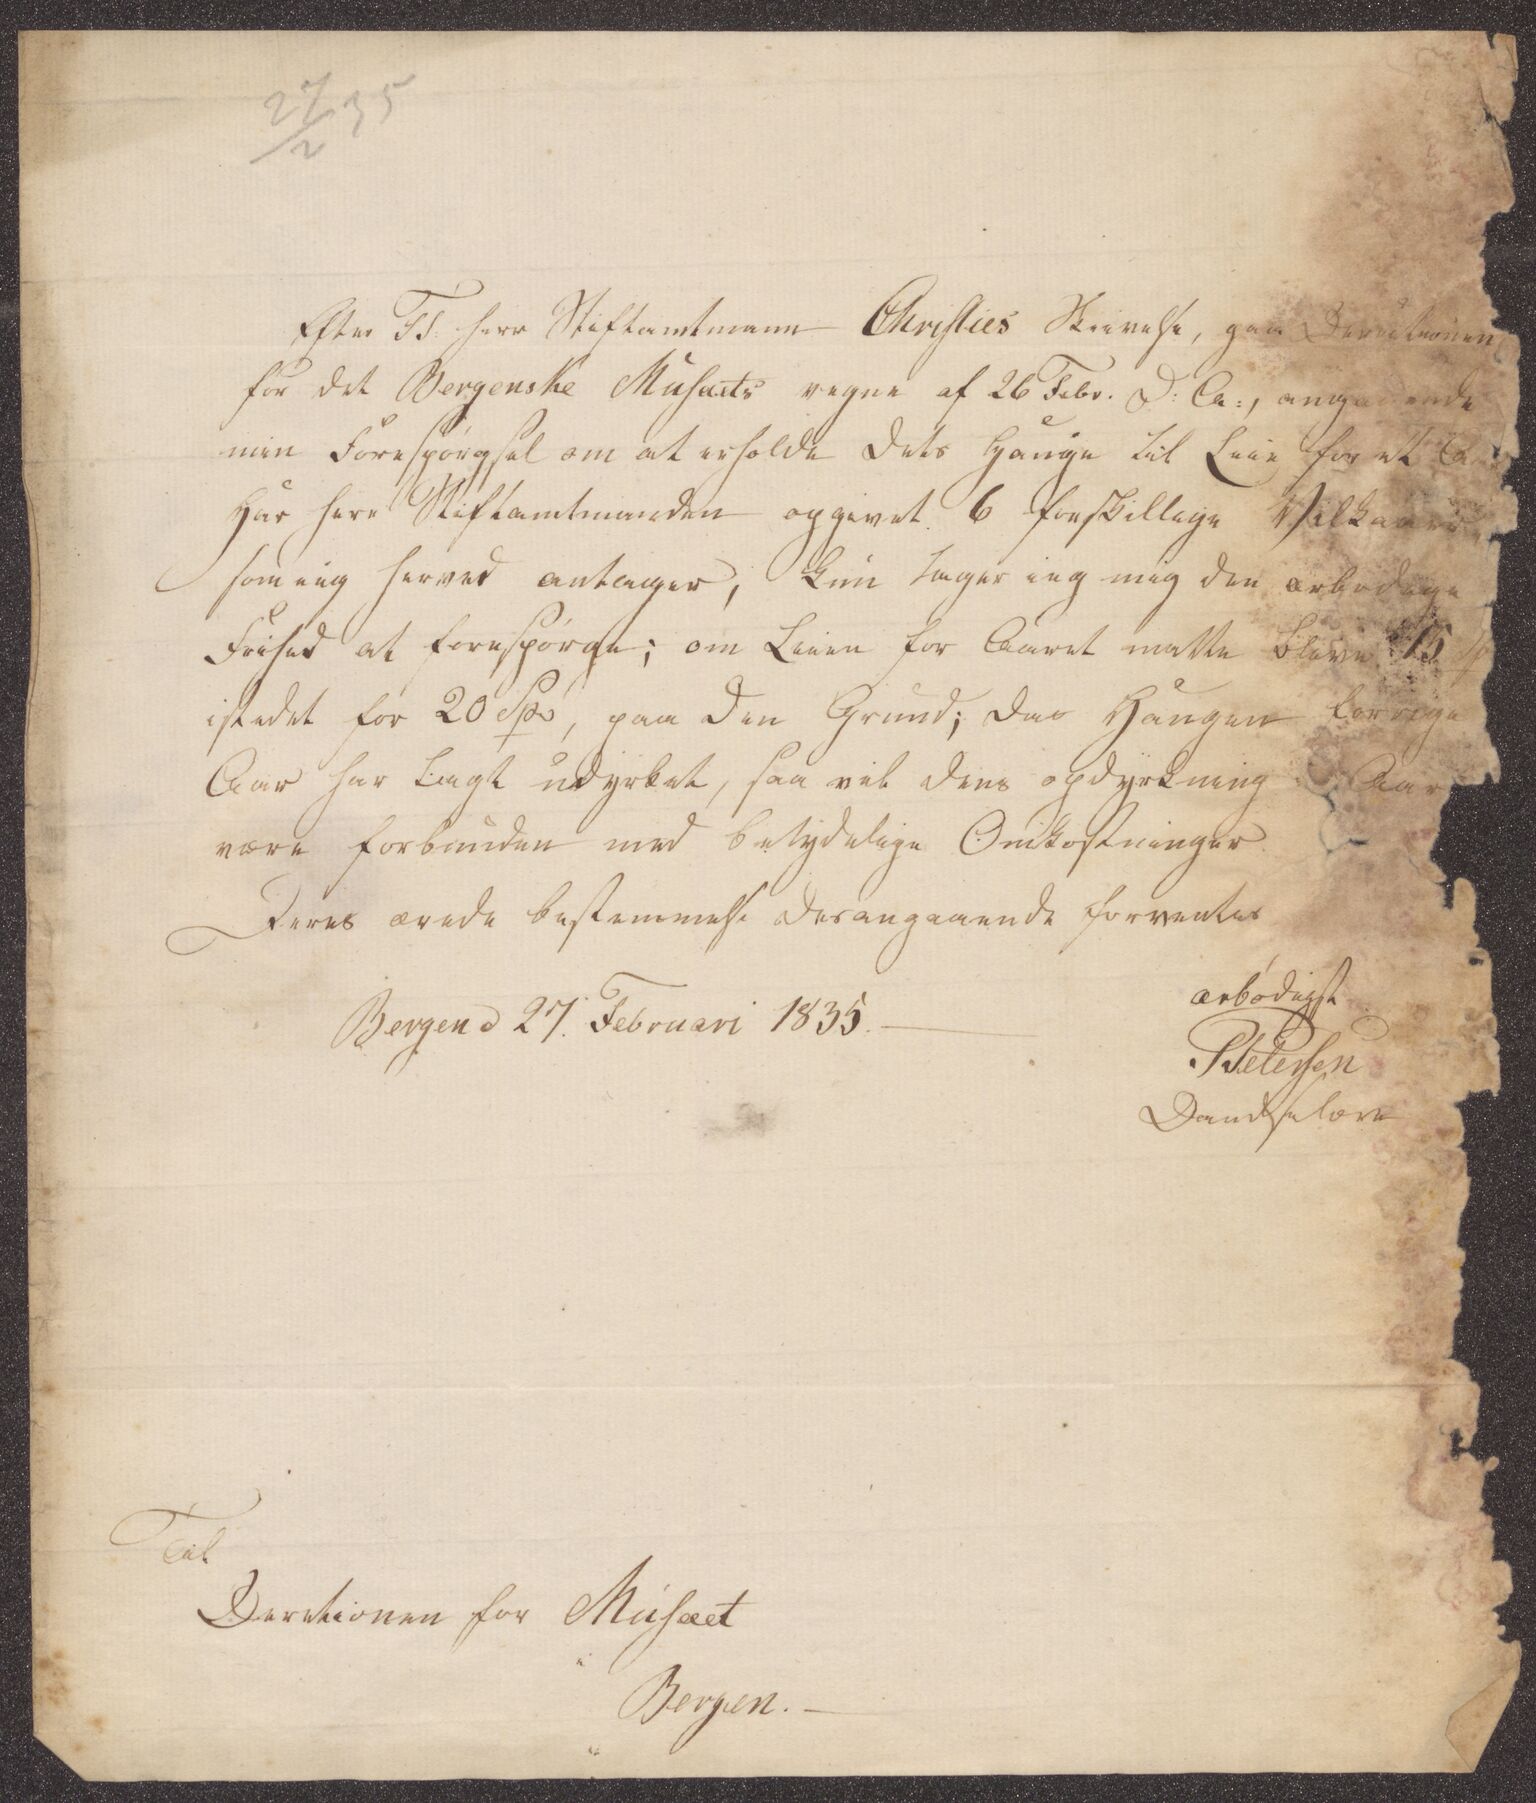 27/2 35
Efter Tl. herr Stiftamtmann Christies Skrivelse, paa Derectionen
for det Bergenske Musæets vegne af 26 Febr. D: A:, angaaende
min Forespørgsel om at erholde dets Hauge til Leie for ett A
Har herr Stiftamtmanden opgivet 6 forskillige Vilkaar
som ieg herved antager, kun tager ieg mig den ærbødige
Frihed at forespørge; om Leien for Aaret matte blive 15
istedet for 20 Spd, paa den Grund; da Haugen forrige
Aar har lagt udyrket, saa vil dens opdyrkning Aar
være forbunden med betydelige Omkostninger.
Deres ærede bestemmelse desangaaende forventes
Bergen d 27. Februari 1835.
ærbødigst
Petersen
Dandselærer
Til
Derectionen for Musæet
i
Bergen.